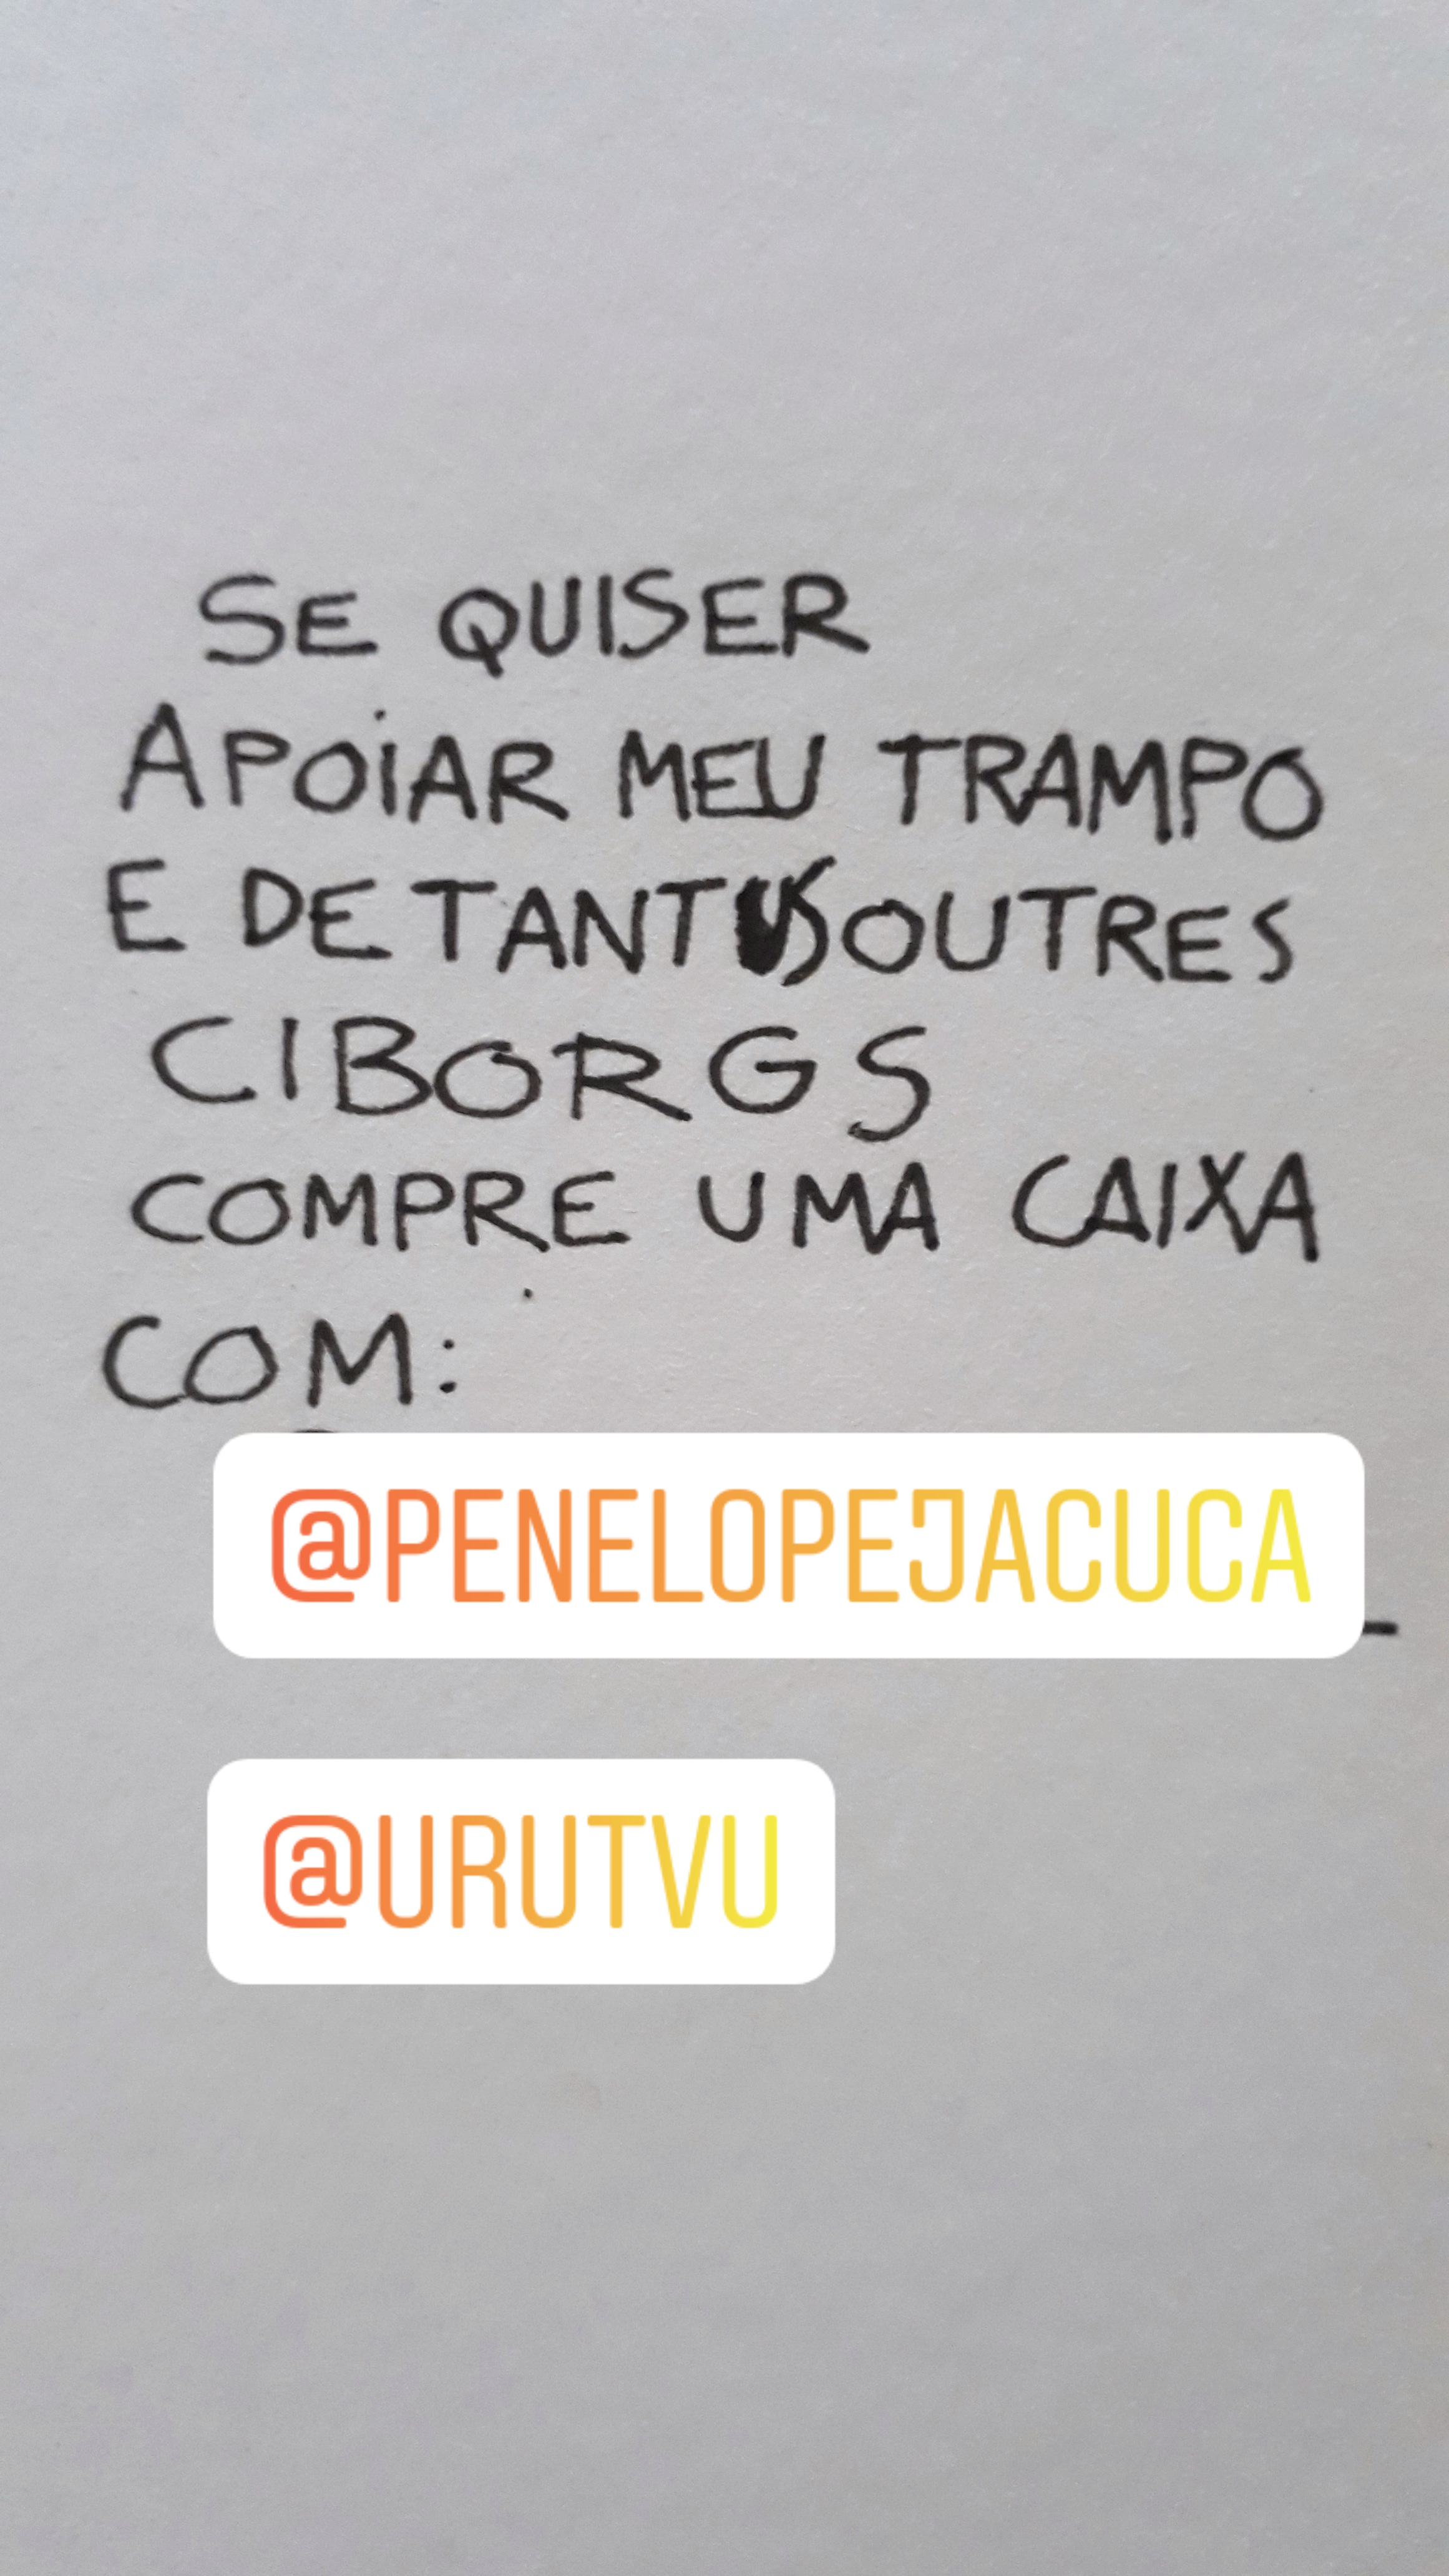 SE QUISER
APOIAR MEU TRAMPO
E DE OUTRES
CIBORGS
COMPRE UMA CAIXA
COM:
@PENELOPEJACUCA
@URUTVU